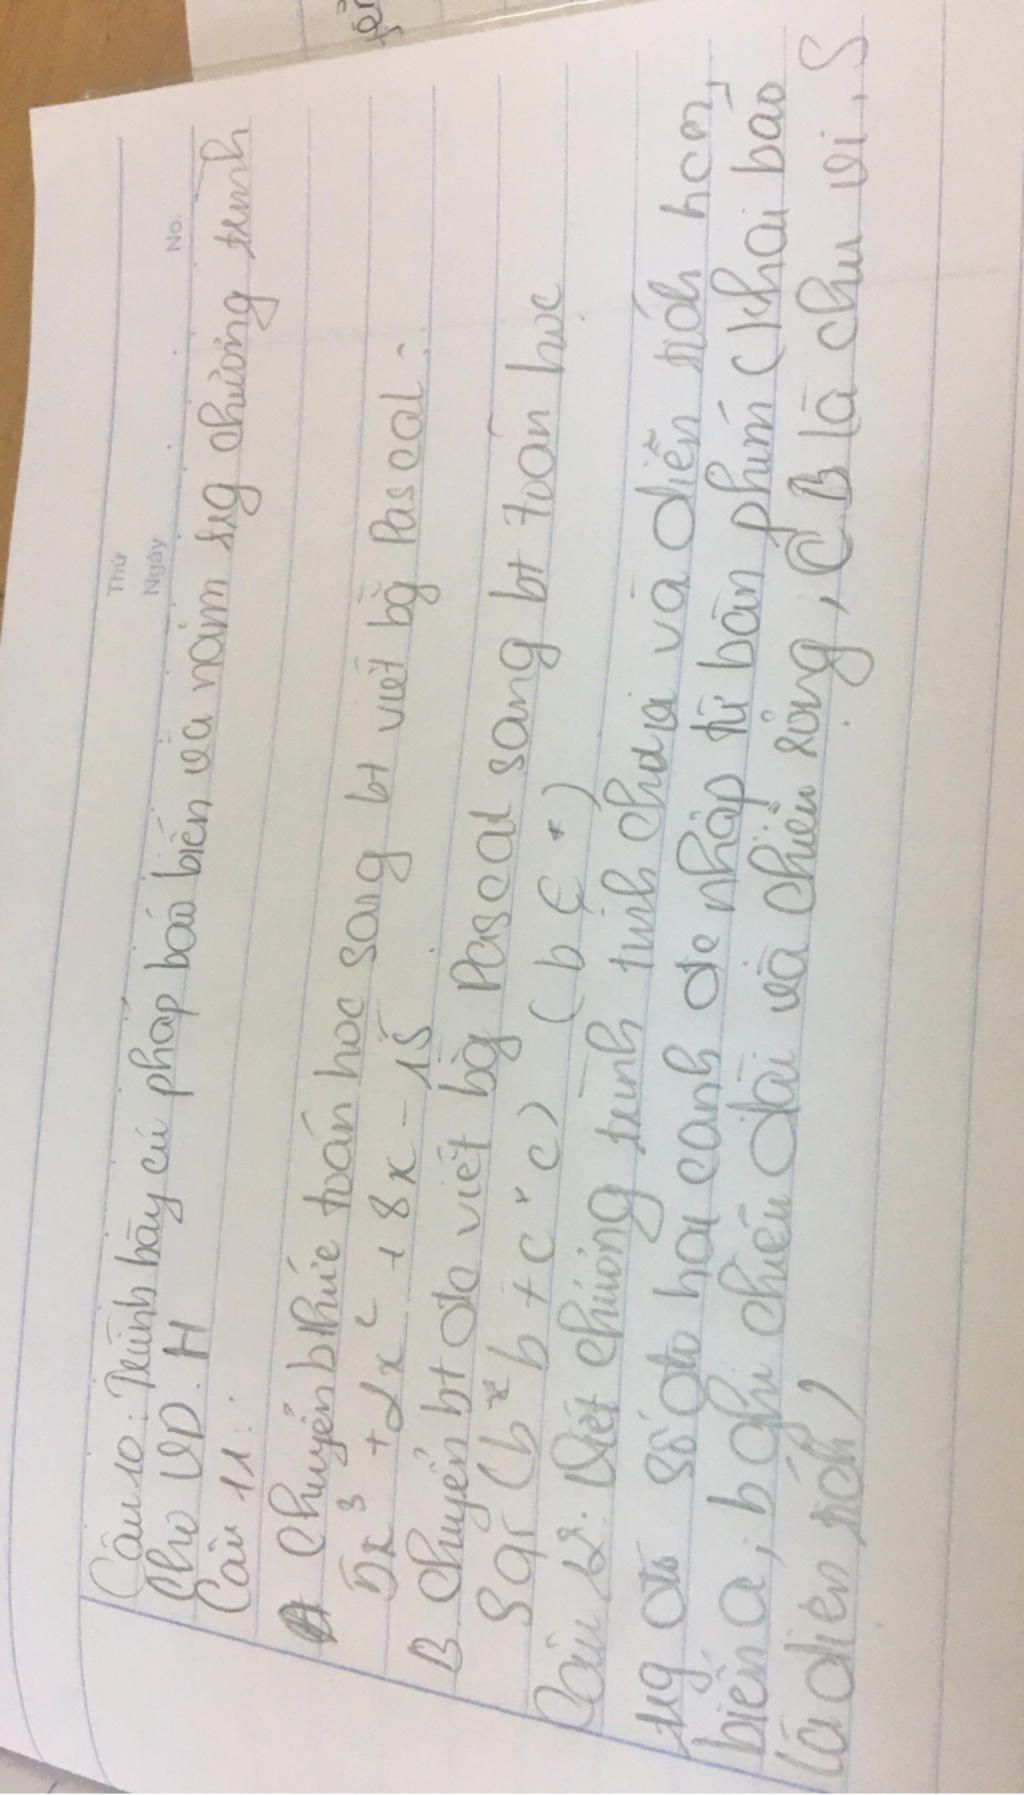 Thứ
Ngày No.
Câu 10: Trình bày cú pháp báo biến và nằm trg chương trình
Cho VD. H
Câu 11:
A Chuyển bthức toán học sang bt viết bg Pascal:
5x³ + 2x² + 8x - 15
B chuyển bt đã viết bg Pascal sang bt toán học
Sqr (b * b + c * c) (b *)
Câu 12. Viết chương trình tính chu vi và diện tích hcn,
trg đó số đo hai cạnh đc nhập từ bàn phím (khai báo
biến a, b ghi chiều dài và chiều rộng, C B là chu vi, S
là diện tích)